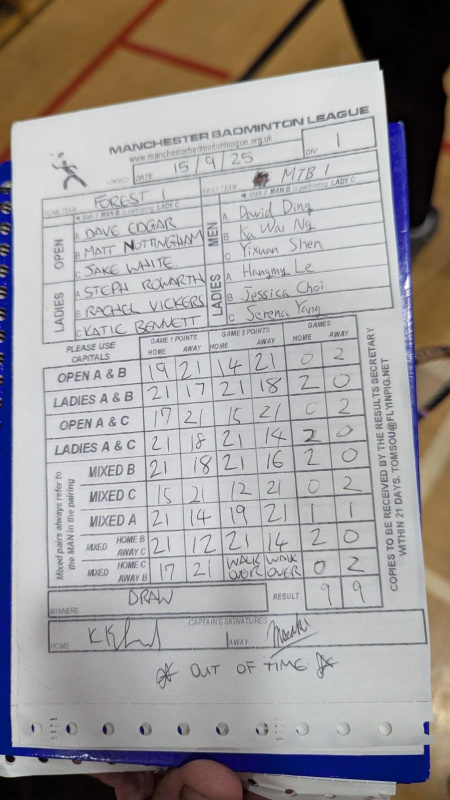 MANCHESTER BADMINTON LEAGUE
www.manchesterbadmintonleague.org.uk
DATE 15/9/25 DIV 1
HOME TEAM FOREST 1 AWAY TEAM MTB 1
OPEN MEN
A DAVE EDGAR A David Ding
B MATT NOTTINGHAM B Ka Wai Ng
C JAKE WHITE C Yixuan Shen
LADIES LADIES
A STEPH ROWARTH A Le
B RACHEL VICKERS B Jessica Choi
C KATIE BENNETT C Serena Yang
PLEASE USE CAPITALS
GAME 1 POINTS GAME 2 POINTS GAMES
HOME AWAY HOME AWAY HOME AWAY
OPEN A & B 19 21 14 21 0 2
LADIES A & B 21 17 21 18 2 0
OPEN A & C 17 21 15 21 0 2
LADIES A & C 21 18 21 14 2 0
MIXED B 21 18 21 16 2 0
MIXED C 15 21 12 21 0 2
MIXED A 21 14 19 21 1 1
MIXED HOME B AWAY C 21 12 21 14 2 0
MIXED HOME C AWAY B 17 21 WALK OVER WALK OVER 0 2
Mixed pairs always refer to the MAN in the pairing
WINNERS DRAW RESULT 9 9
CAPTAIN'S SIGNATURES
HOME AWAY
OUT OF TIME
COPIES TO BE RECEIVED BY THE RESULTS SECRETARY
WITHIN 21 DAYS. TOMSOU@FLYINPIG.NET